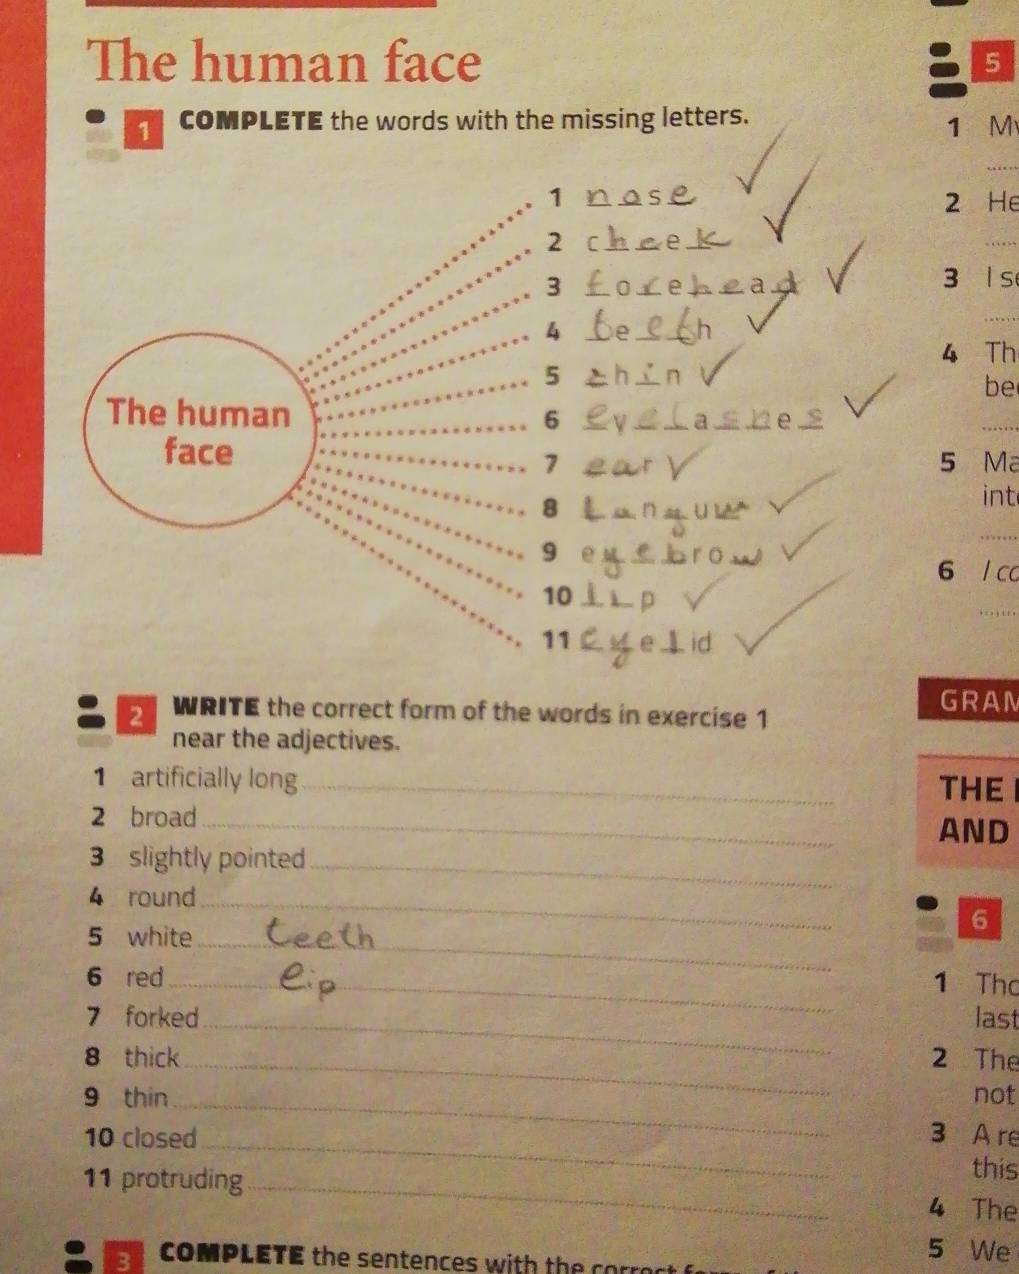 The human face
1 COMPLETE the words with the missing letters.
1 nose
2 cheek
3 forehead
4 teeth
5 chin
6 eyelashes
7 ear
8
9 eyebrow
10 lip
11 eyelid
The human
face
2 WRITE the correct form of the words in exercise 1
near the adjectives.
1 artificially long
2 broad
3 slightly pointed
4 round
5 white teeth
6 red lip
7 forked
8 thick
9 thin
10 closed
11 protruding
3 COMPLETE the sentences with the correct
5
1
2 He
3 I
4 Th
5 Ma
6 I
GRAM
THE
AND
6
1
last
2 The
not
3 A re
this
4 The
5 We